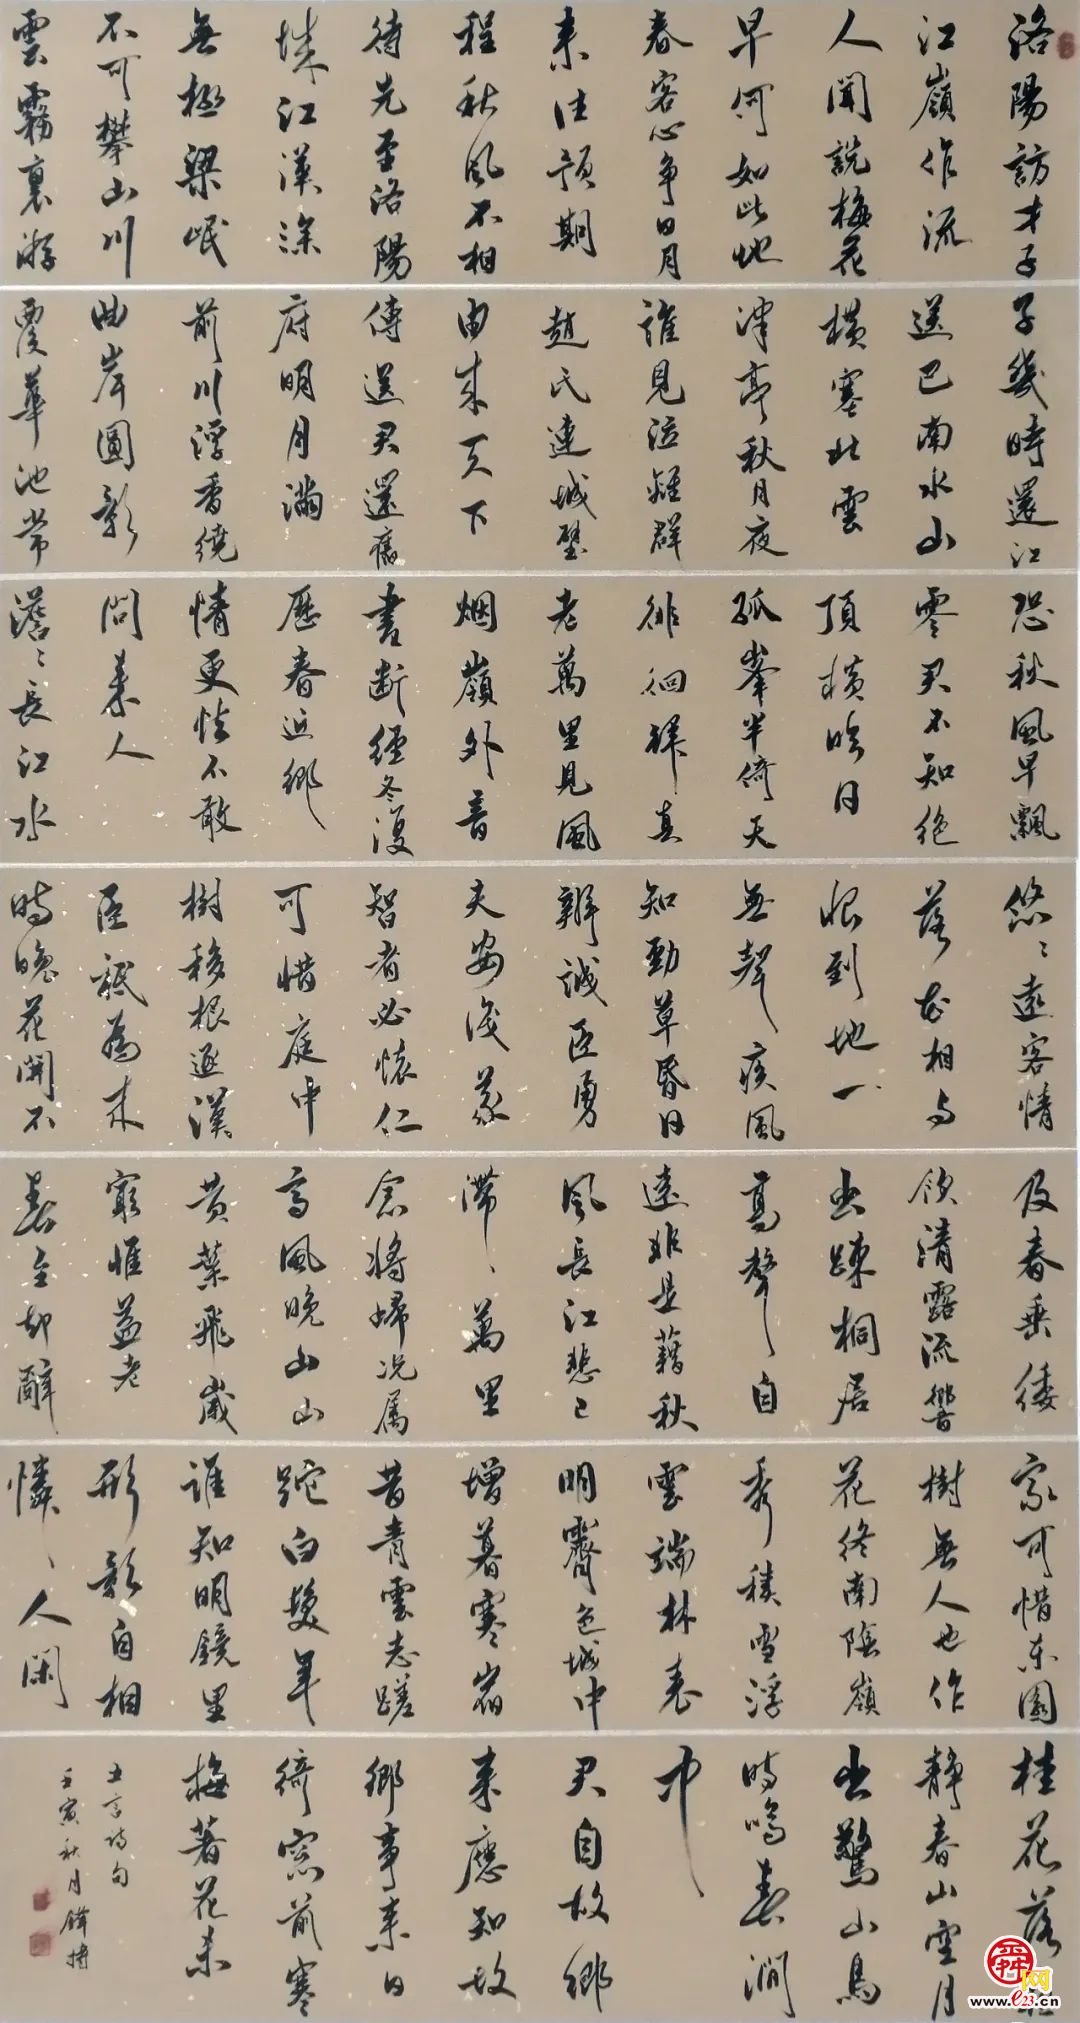 洛陽訪才子
江嶺作流
人聞說梅花
早何如此地
春客心争日月
来往预期
程秋風不相
待先至洛陽
城江漢深
無極梁岷
不可攀山川
雲霧裏游
子幾時還江
送巴南水山
横塞北雲
津亭秋月夜
誰見泣離群
趙氏連城璧
由来天下
傳送君還舊
府明月滿
前川浮香繞
曲岸圓影
覆華池常
恐秋風早飄
零君不知绝
頂横臨日
孤峯半倚天
徘徊拜真
老萬里見風
烟嶺外音
書断经冬復
歷春近鄉
情更怯不敢
問来人
澹〻長江水
悠〻遠客情
落花相与
恨到地一
無聲疾風
知勁草昏日
辨誠臣勇
夫安識義
智者必懷仁
可惜庭中
樹移根逐漢
臣祇為来
時晚花開不
及春垂緌
飲清露流響
出疎桐居
高聲自
遠非是藉秋
風長江悲已
滯萬里
念將歸况属
高風晚山山
黄葉飛歲
窮惟益老
春至却辭
家可惜東園
樹無人也作
花終南陰嶺
秀積雪浮
雲端林表
明霽色城中
增暮寒宿
昔青雲志蹉
跎白髮年
誰知明鏡里
形影自相
憐人閑
桂花落夜
静春山空月
出驚山鳥
時鳴春澗
中
君自故鄉
来應知故
鄉事来日
綺窓前寒
梅著花未
五言诗句
壬寅秋月
舜网
www.e23.cn